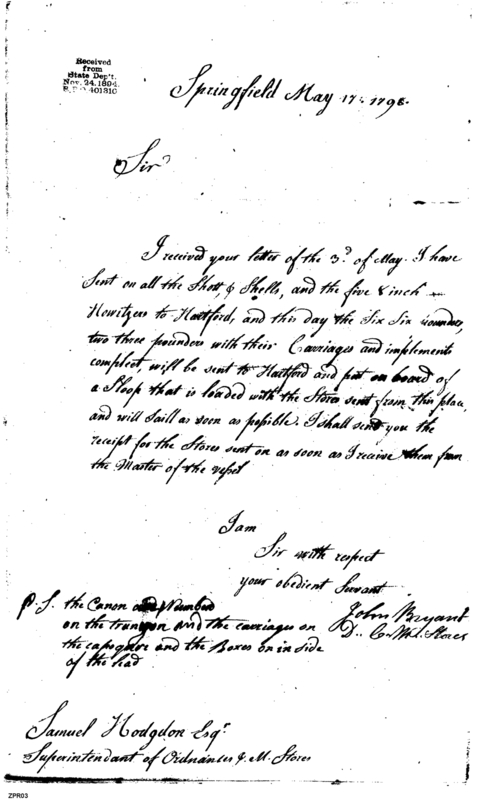 Received
from
State Dep't.
Nov. 24. 1894
401310
Springfield May 17: 1798.
Sir
I received your letter of the 3.d of May. I have
Sent on all the Shott, & Shells, and the five 8 inch
Howitzers to Hartford, and this day the Six Six pounders,
two three pounders with their Carriages and implements
compleet, will be sent to Hartford and put on board of
a Sloop that is loaded with the Stores sent from this place,
and will Saill as soon as possible. I shall send you the
receipt for the Stores sent on as soon as I receive them from
the Master of the vessel
I am
Sir with respect
your obedient Servant
John Bryant
D.. C. M. Stores
P.S. the Canon are Numbered
on the and the carriages on
the and the Boxes on in side
of the lead
Samuel Hodgdon Esqr.
Superintendant of Ordnances & M. Stores
ZPR03